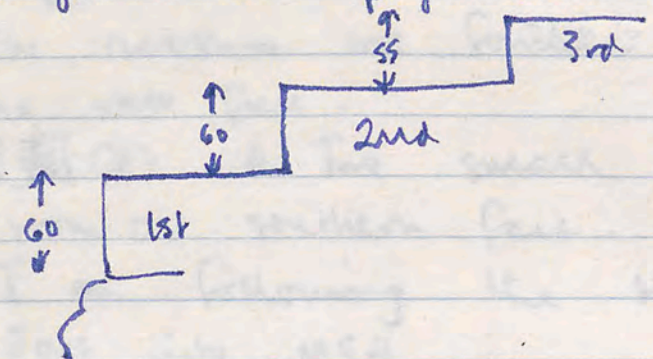 55
3rd
60
2nd
60
1st